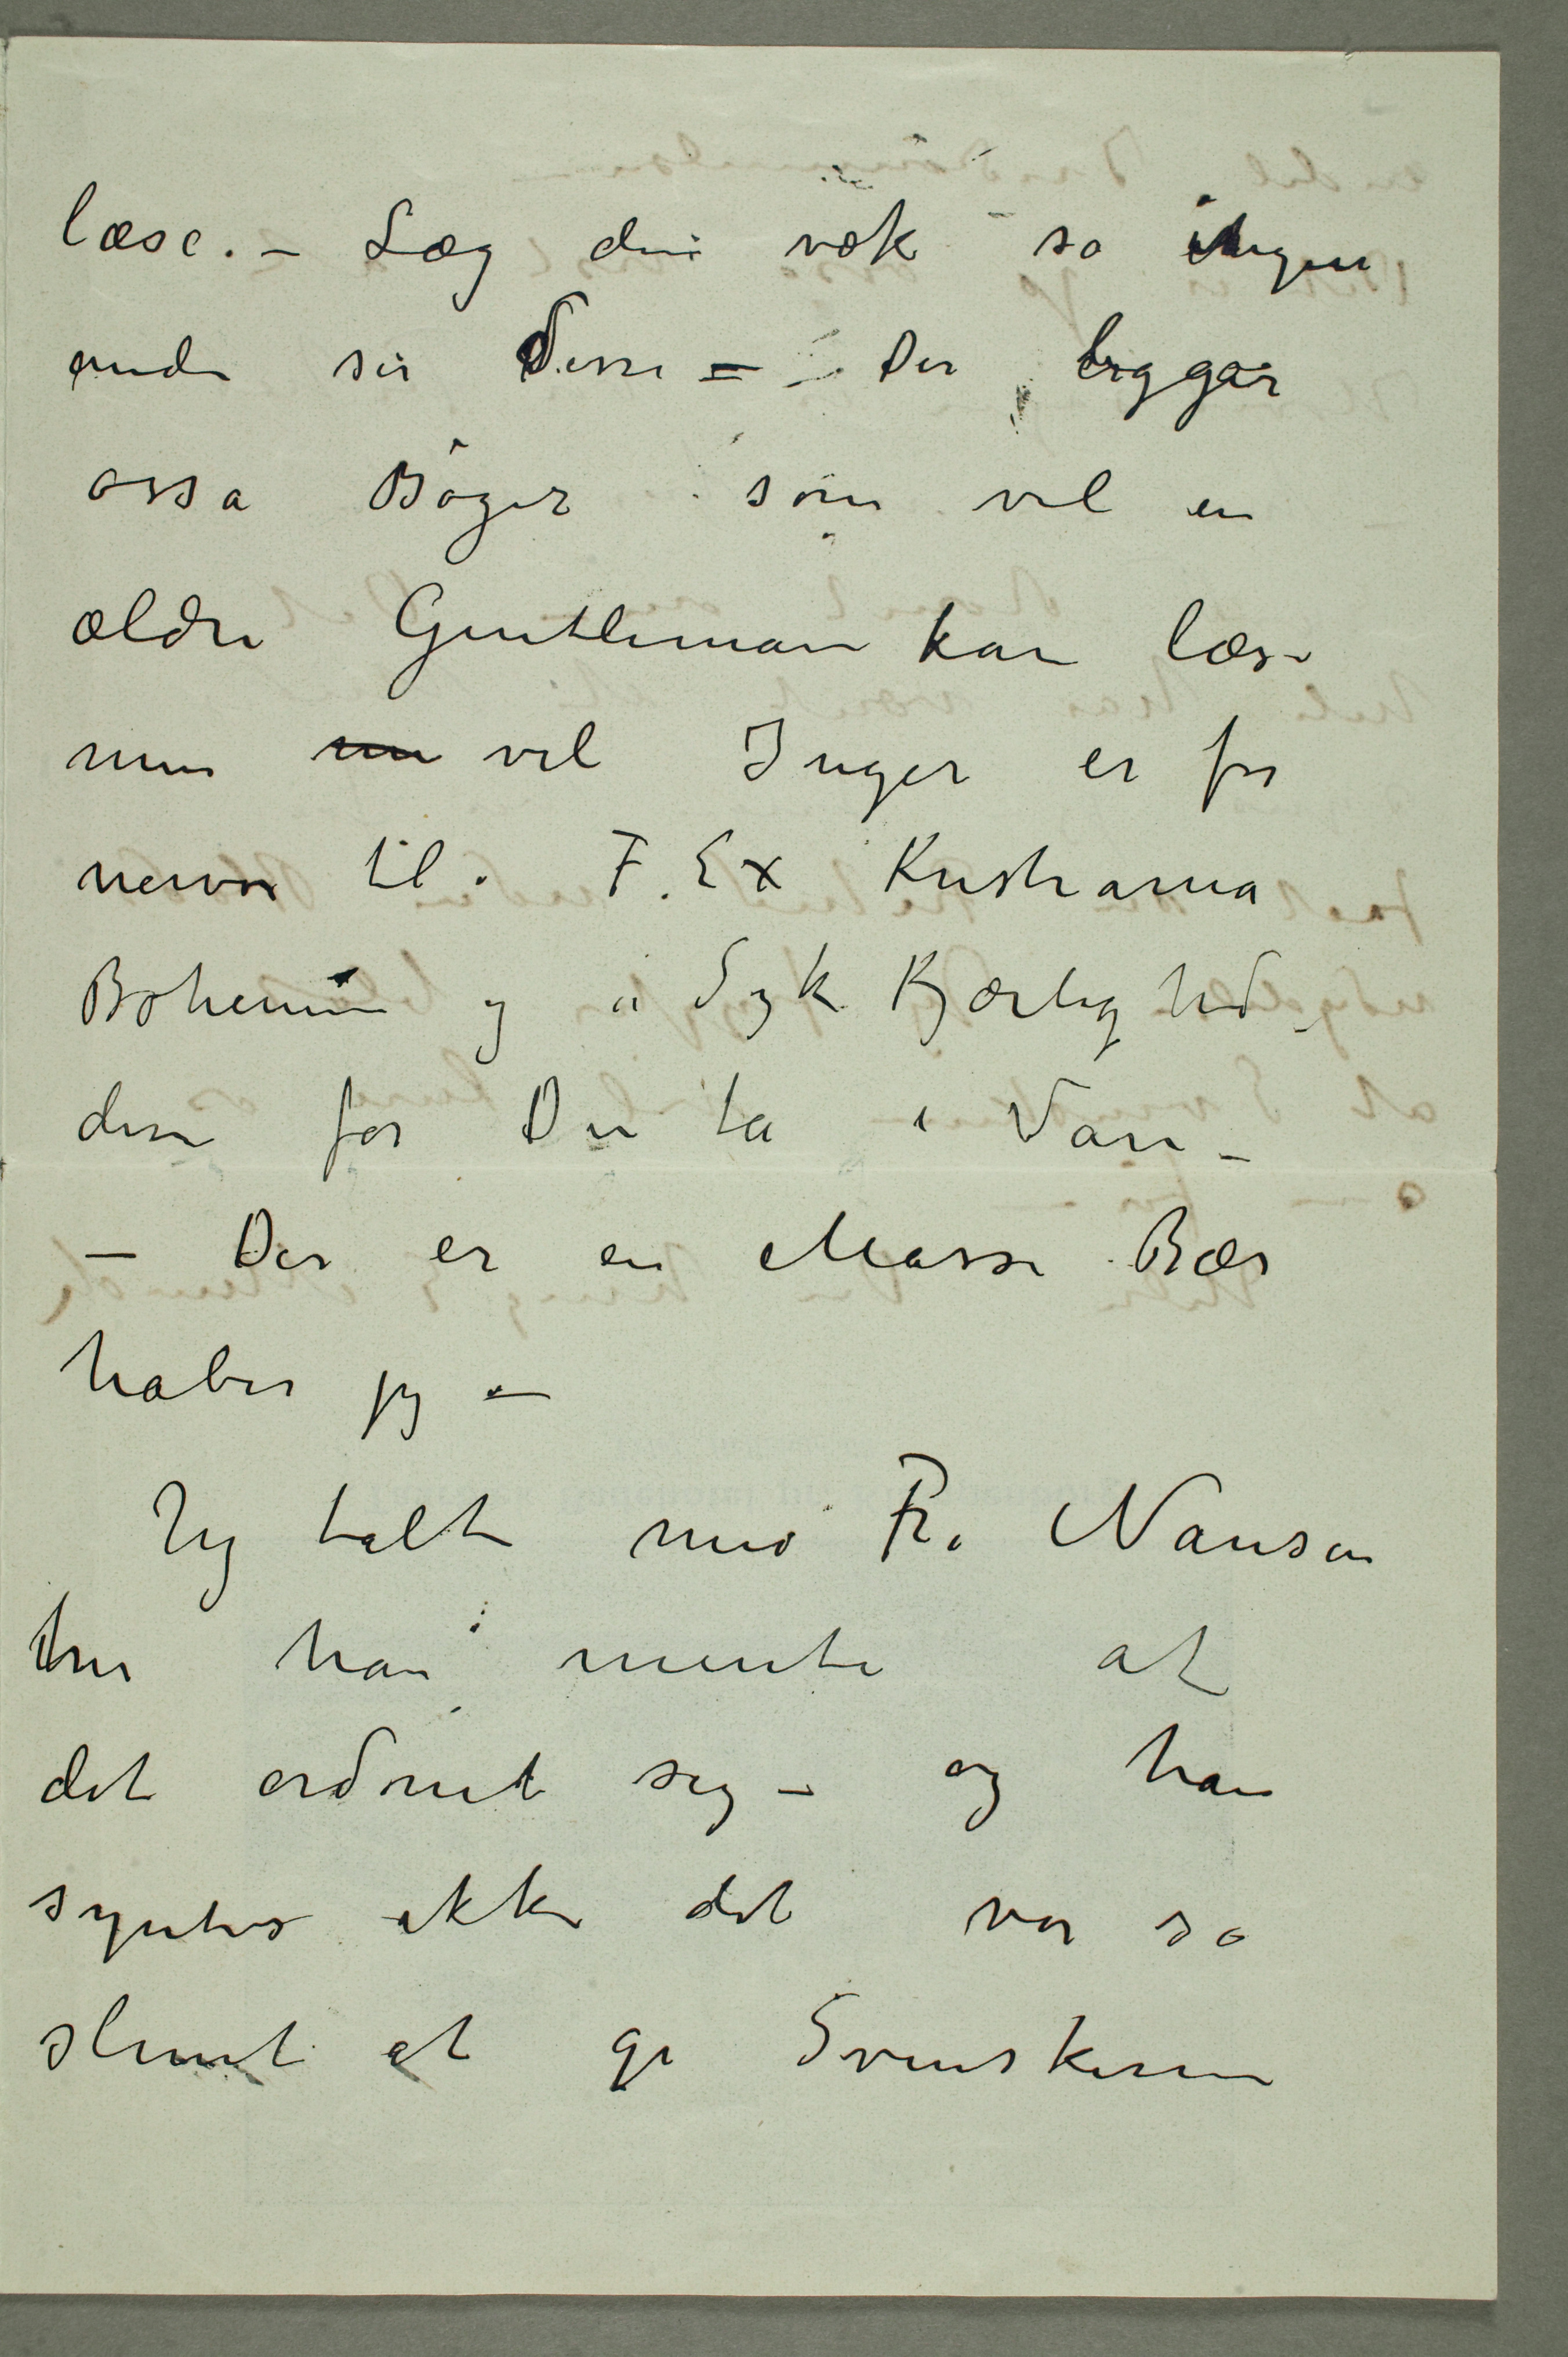 læse. – Læg dem væk så ingen
andre ser disse – Der ligger
osså Bøger som vel en
ældre Gentleman kan læse
men vel Inger er for
nervøs til. F. Ex Kristiania
Bohemen og i Syk Kjærlighed –
dem får Du ta i Vare –
– Der er en Masse Bær
håber jeg –
Jeg talte med Fr. Nansen
her han mente at
det ordnet sig – og han
syntes ikke det var så
slemt at gi Svenskerne